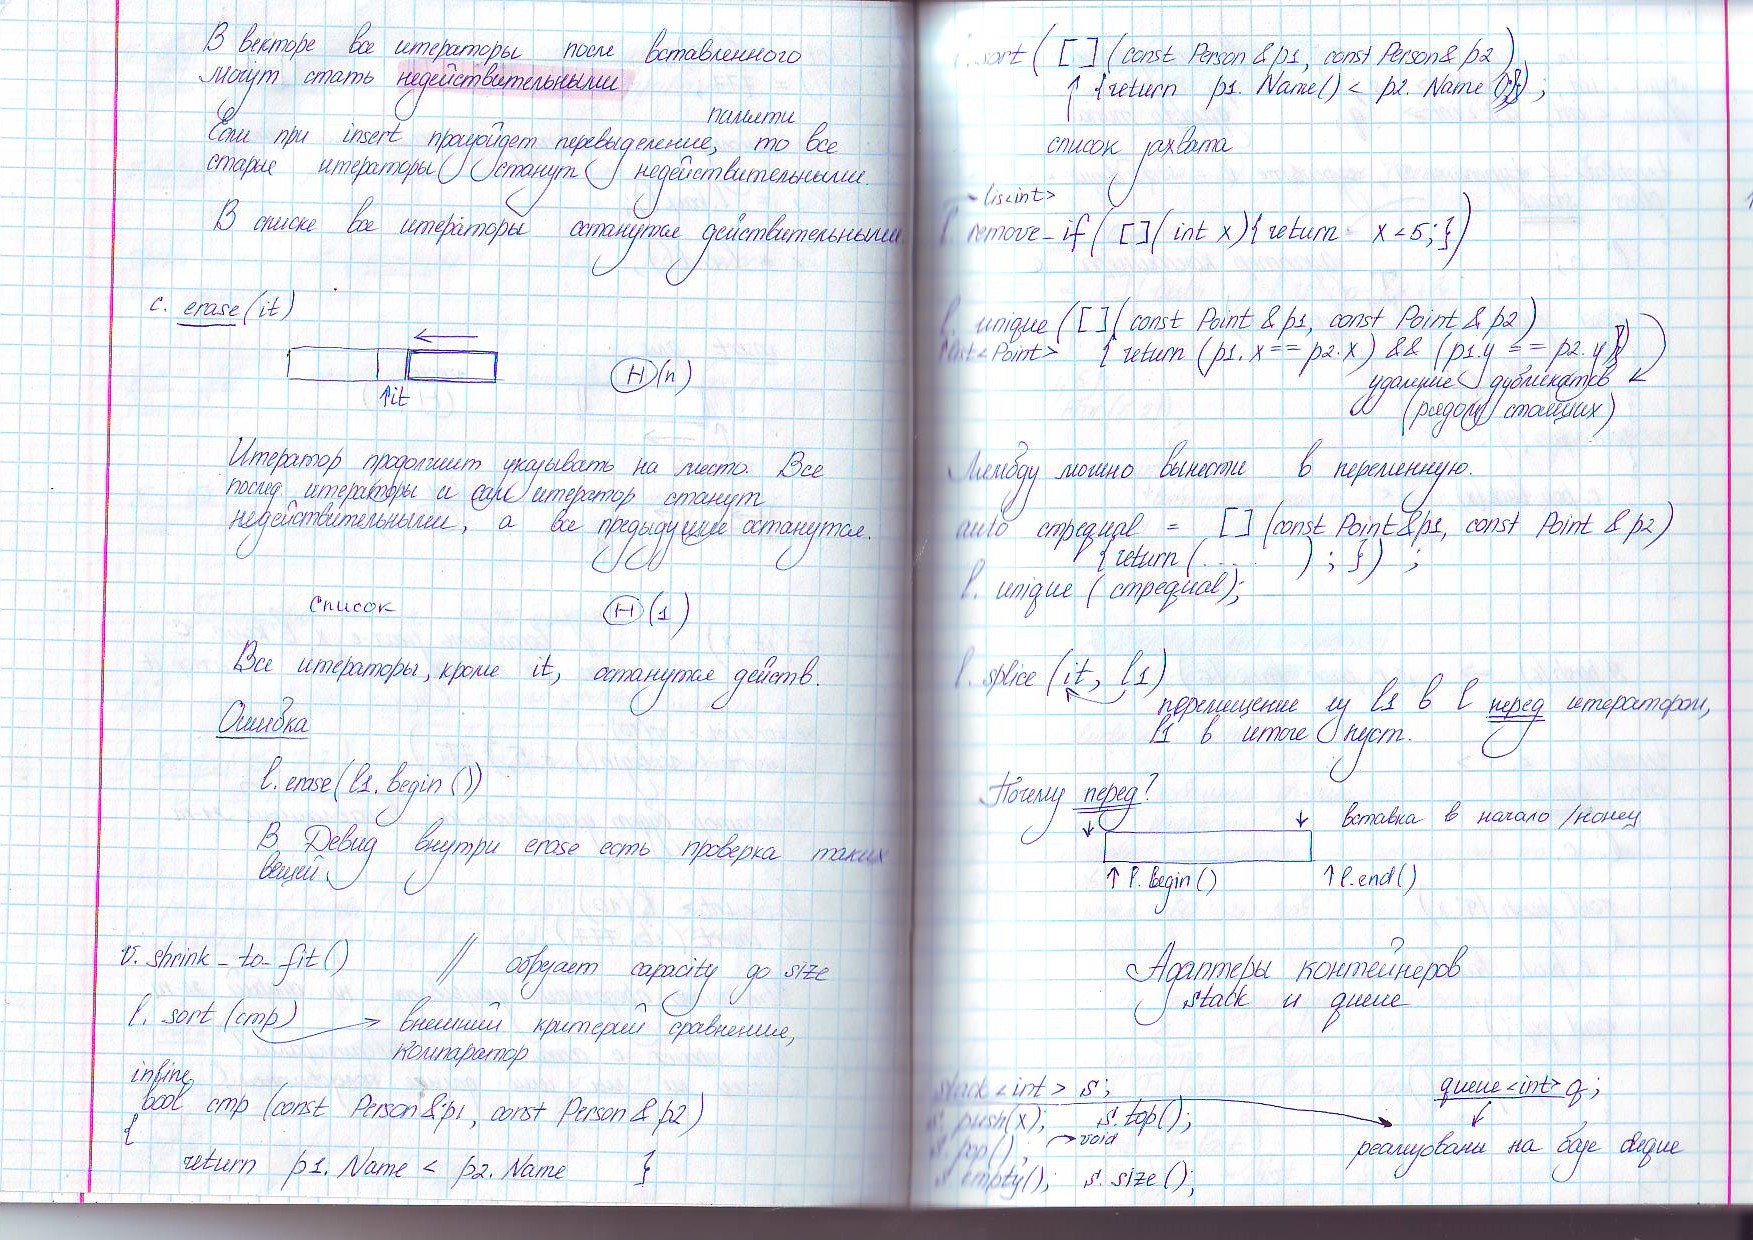 В векторе все итераторы после вставленного
могут стать недействительными
памяти
Если при insert произойдет перевыделение, то все
старые итераторы станут недействительными.
В списке все итераторы останутся действительными
c. erase(it)
Θ(n)
↑it
Итератор продолжит указывать на место. Все
послед итераторы и сам итератор станут
недействительными, а все предыдущие останутся.
Список Θ(1)
Все итераторы, кроме it, останутся действ.
Ошибка
l. erase(l1. begin())
В Debug внутри erase есть проверка таких
вещей.
v. shrink_to_fit() // обрезает capacity до size
l. sort(cmp) → внешний критерий сравнения,
компаратор
inline
bool cmp (const Person &p1, const Person & p2)
{
return p1. Name < p2. Name }
l. sort ( [ ] (const Person &p1, const Person & p2)
↑ {return p1. Name() < p2. Name();});
список захвата
lis<int>
l. remove_if ( [ ] (int x) {return x<5;})
l. unique ( [ ] (const Point & p1, const Point & p2)
list<Point> { return (p1.x == p2.x) && (p1.y == p2.y)})
удаление дубликатов
(рядом стоящих)
Лямбду можно вынести в переменную.
auto cmpequal = [ ] (const Point &p1, const Point & p2)
{return (... ) ; }) ;
l. unique ( cmpequal);
l. splice (it, l1)
перемещение из l1 в l перед итератором,
l1 в итоге пуст.
Почему перед?
вставка в начало /конец
↑ l. begin() ↑ l. end()
Адаптеры контейнеров
stack и queue
stack <int> s; queue <int> q;
s. push(x); s. top();
s. pop(); → void реализованы на базе deque
s. empty(); s. size();